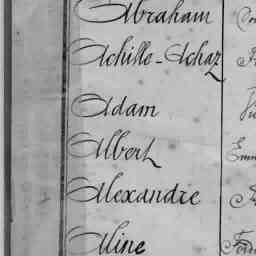 Abraham
Achille-Achaz
Adam
Albert
Alexandre
Aline